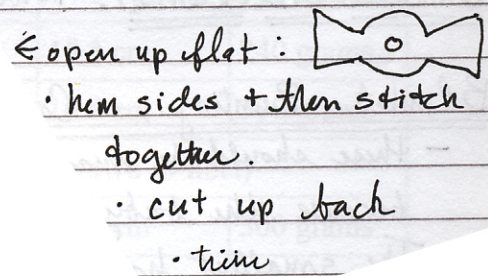 ← open up flat :
• hem sides + then stitch
together.
• cut up back
• trim